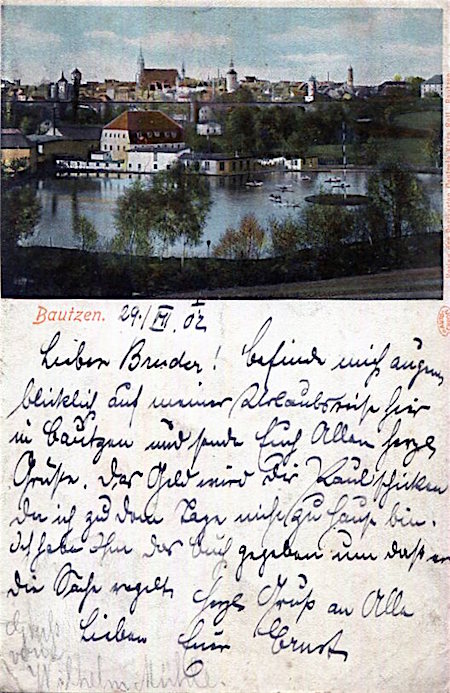 Bautzen. 29./VII. 02
Lieber Bruder! befinde mich augen
blicklich auf meiner Urlaubsreise hier
in Bautzen und sende Euch Allen herzl
Grüße. Das Geld wird Dir Paul schicken
da ich zu dem Tage nicht zu Hause bin.
Ich habe ihm das Buch gegeben um daß er
die Sache regelt. Herzl Gruß an Alle
Lieben Euer Ernst
Gruß
von
Wilhelm Mühle.